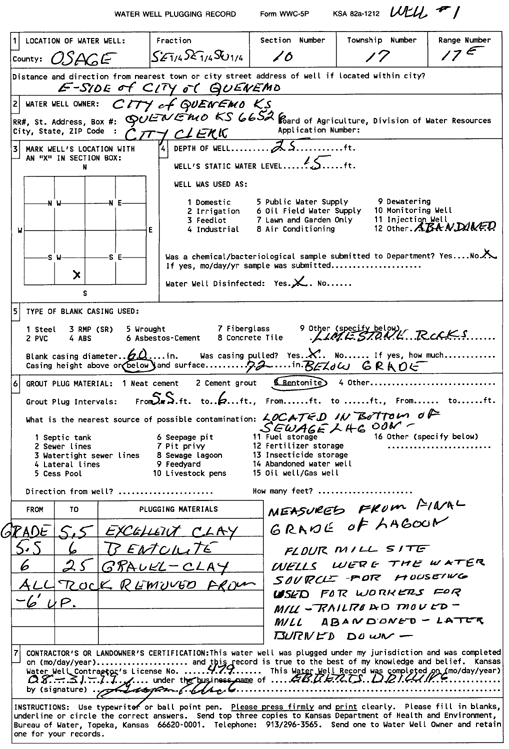 WATER WELL PLUGGING RECORD Form WWC-5P KSA 82a-1212 WELL #1
1 LOCATION OF WATER WELL: Fraction Section Number Township Number Range Number
County: OSAGE SE 1/4 SE 1/4 SW 1/4 10 17 17 E
Distance and direction from nearest town or city street address of well if located within city?
E-SIDE OF CITY OF QUENEMO
2 WATER WELL OWNER: CITY OF QUENEMO KS
RR#, St. Address, Box #: QUENEMO KS 66528 Board of Agriculture, Division of Water Resources
City, State, ZIP Code : CITY CLERK Application Number:
3 MARK WELL'S LOCATION WITH AN "X" IN SECTION BOX:
N
N W N E
W E
S W S E
X
S
4 DEPTH OF WELL......25......ft.
WELL'S STATIC WATER LEVEL...15...ft.
WELL WAS USED AS:
1 Domestic 5 Public Water Supply 9 Dewatering
2 Irrigation 6 Oil Field Water Supply 10 Monitoring Well
3 Feedlot 7 Lawn and Garden Only 11 Injection Well
4 Industrial 8 Air Conditioning 12 Other. ABANDONED
Was a chemical/bacteriological sample submitted to Department? Yes....No.X
If yes, mo/day/yr sample was submitted..................
Water Well Disinfected: Yes.X.. No......
5 TYPE OF BLANK CASING USED:
1 Steel 3 RMP (SR) 5 Wrought 7 Fiberglass 9 Other (specify below)
2 PVC 4 ABS 6 Asbestos-Cement 8 Concrete Tile LIMESTONE ROCKS
Blank casing diameter..60....in. Was casing pulled? Yes..X.. No...... If yes, how much..........
Casing height above or below and surface.........72......in. BELOW GRADE
6 GROUT PLUG MATERIAL: 1 Neat cement 2 Cement grout 3 Bentonite 4 Other...............
Grout Plug Intervals: From 5.5 ft. to..6...ft., From.....ft. to .....ft., From...... to......ft.
What is the nearest source of possible contamination: LOCATED IN BOTTOM OF
SEWAGE LAGOON -
1 Septic tank 6 Seepage pit 11 Fuel storage 16 Other (specify below)
2 Sewer lines 7 Pit privy 12 Fertilizer storage
3 Watertight sewer lines 8 Sewage lagoon 13 Insecticide storage
4 Lateral lines 9 Feedyard 14 Abandoned water well
5 Cess Pool 10 Livestock pens 15 Oil well/Gas well
Direction from well? ................... How many feet? ....................
FROM TO PLUGGING MATERIALS
GRADE 5.5 EXCELLENT CLAY
5.5 6 BENTONITE
6 25 GRAVEL-CLAY
ALL ROCK REMOVED FROM
-6' UP.
MEASURED FROM FINAL
GRADE OF LAGOON
FLOUR MILL SITE
WELLS WERE THE WATER
SOURCE FOR HOUSEING
USED FOR WORKERS FOR
MILL -RAILROAD MOVED-
MILL ABANDONED - LATER
BURNED DOWN -
7 CONTRACTOR'S OR LANDOWNER'S CERTIFICATION: This water well was plugged under my jurisdiction and was completed
on (mo/day/year)................... and this record is true to the best of my knowledge and belief. Kansas
Water Well Contractor's License No. ....479.... This Water Well Record was completed on (mo/day/year)
08-31-11.. under the business name of ....EBBERTS DRILLING....
by (signature)
INSTRUCTIONS: Use typewriter or ball point pen. Please press firmly and print clearly. Please fill in blanks,
underline or circle the correct answers. Send top three copies to Kansas Department of Health and Environment,
Bureau of Water, Topeka, Kansas 66620-0001. Telephone: 913/296-3565. Send one to Water Well Owner and retain
one for your records.